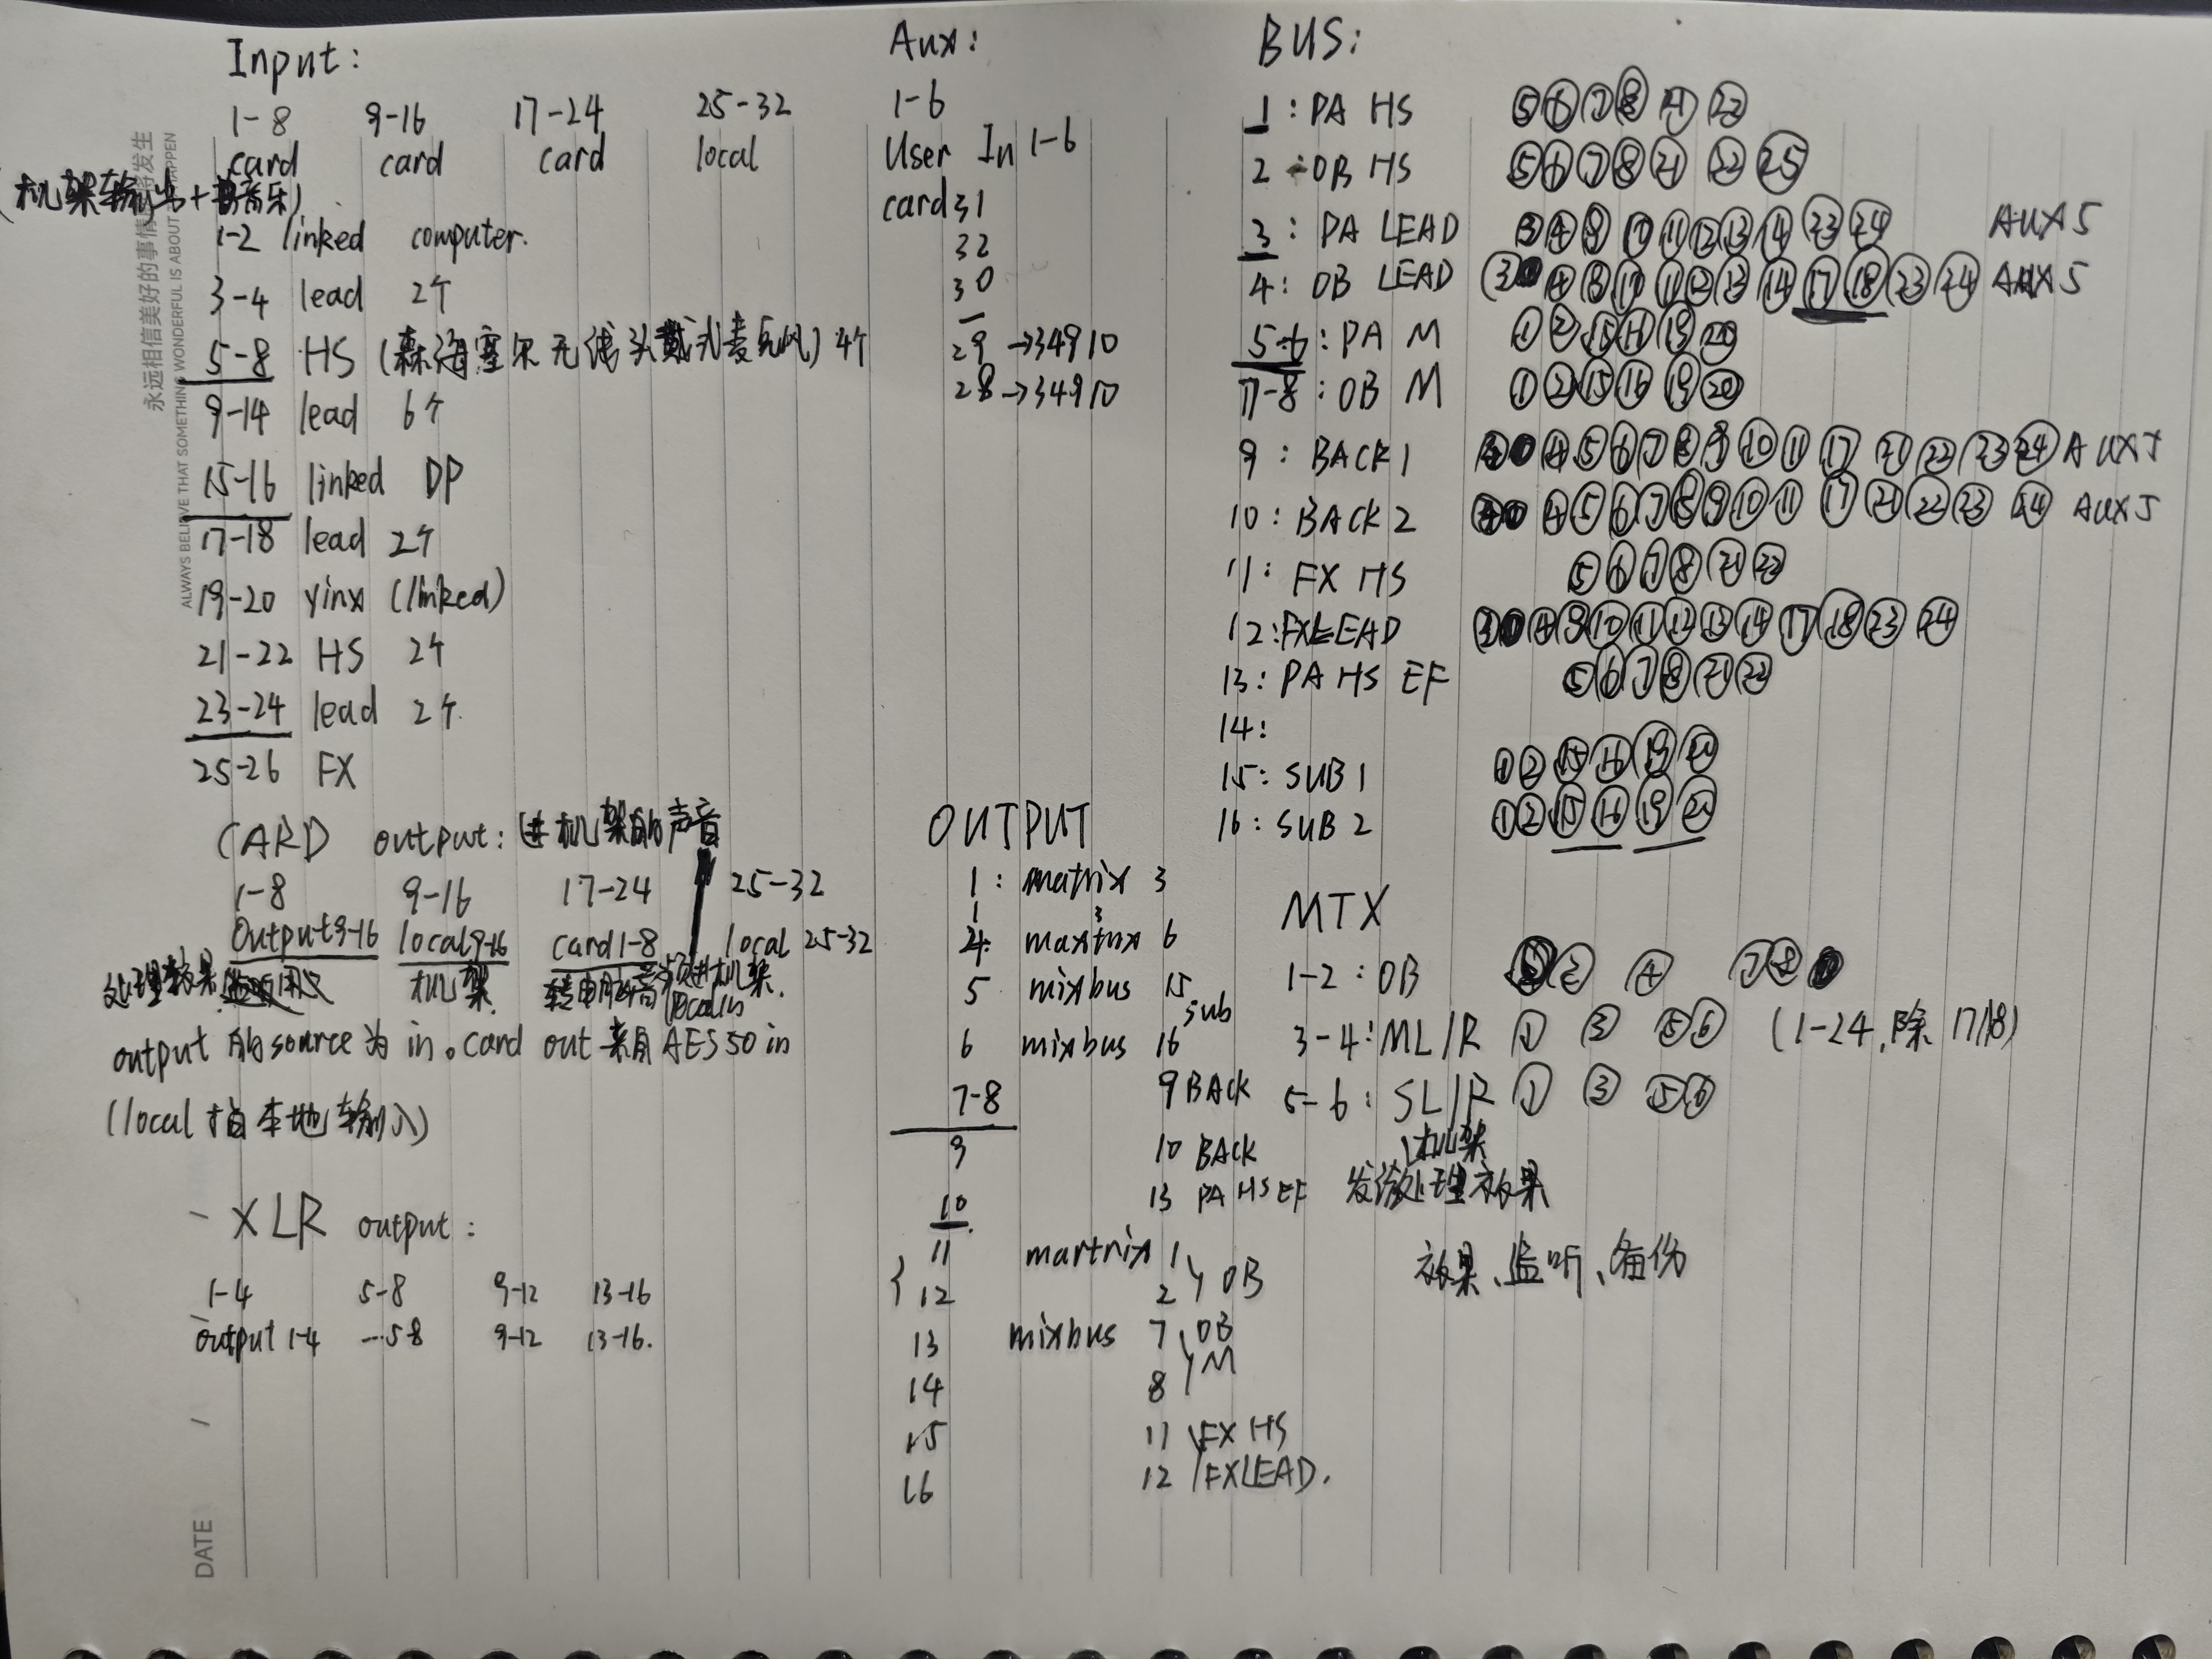 Input:
1-8 9-16 17-24 25-32
card card card local
(机架输出+音乐)
1-2 linked computer.
3-4 lead 2个
5-8 HS (森海塞尔无线头戴式麦克风) 4个
9-14 lead 6个
15-16 linked DP
17-18 lead 2个
19-20 yinx (linked)
21-22 HS 2个
23-24 lead 2个.
25-26 FX
CARD output: 进机架的声音
1-8 9-16 17-24 25-32
Output9-16 local9-16 card1-8 local 25-32
处理效果 机架 进机架.
local in
output 的source为in。card out 来自AES50 in
(local 指本地输入)
XLR output:
1-4 5-8 9-12 13-16
output 1-4 ---5-8 9-12 13-16.
Aux:
1-6
User In 1-6
card 31
32
30
29 →34910
28 →34910
OUTPUT
1: matrix 3
4: maxtrix 6
5 mixbus 15
sub
6 mixbus 16
7-8 9 BACK
9 10 BACK
10 13 PA HS EF
11 martrix 1
12 2 OB
13 mixbus 7 OB
14 8 M
15 11 FX HS
16 12 FXLEAD.
BUS:
1: PA HS ⑤⑥⑦⑧㉑㉒
2: OB HS ⑤⑥⑦⑧㉑㉒㉕
3: PA LEAD ③④⑨⑩⑪⑫⑬⑭㉓㉔ AUX5
4: OB LEAD ③④⑨⑩⑪⑫⑬⑭⑰⑱㉓㉔ AUX5
5-6: PA M ①②⑮⑯⑲⑳
7-8: OB M ①②⑮⑯⑲⑳
9: BACK1 ③④⑤⑥⑦⑧⑨⑩⑪⑰㉑㉒㉓㉔ AUX5
10: BACK2 ④⑤⑥⑦⑧⑨⑩⑪⑰㉑㉒㉓㉔ AUX5
11: FX HS ⑤⑥⑦⑧㉑㉒
12: FXLEAD ③④⑨⑩⑪⑫⑬⑭⑰⑱㉓㉔
13: PA HS EF ⑤⑥⑦⑧㉑㉒
14:
15: SUB1 ①②⑮⑯⑲⑳
16: SUB2 ①②⑮⑯⑲⑳
MTX
1-2: OB ② ④ ⑦⑧
3-4: ML/R ① ③ ⑤⑥ (1-24,除17/18)
5-6: SL/R ① ③ ⑤⑥
机架
发给处理效果
效果、监听、备份
永远相信美好的事情即将发生
ALWAYS BELIEVE THAT SOMETHING WONDERFUL IS ABOUT TO HAPPEN
DATE / /